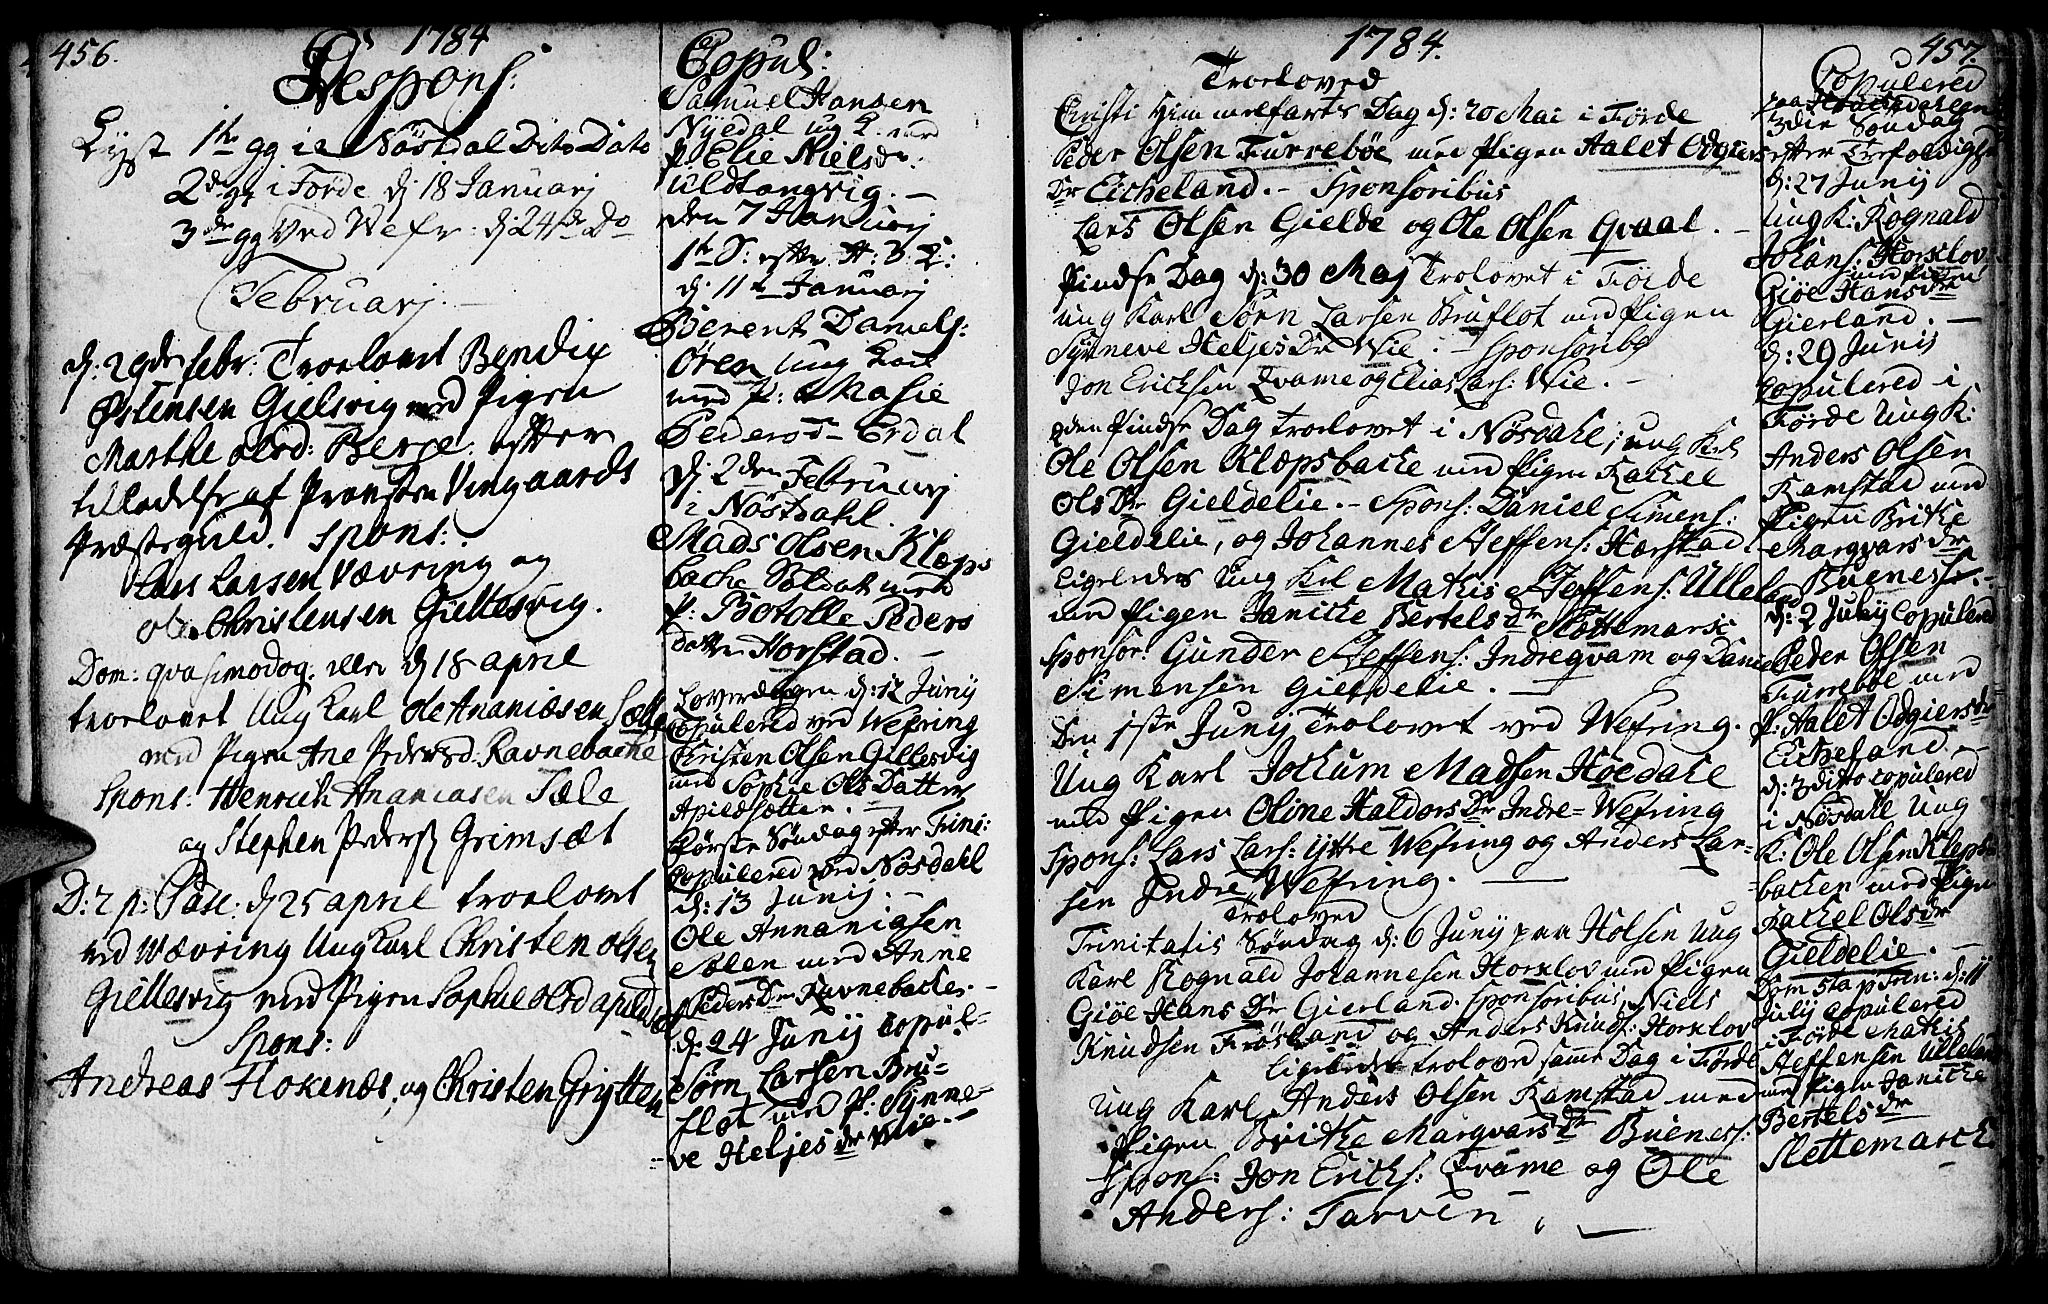 456.
1784
Despons:
Lyst 1te gg i Nösdal Dito Dato
2de gg i Förde d: 18 Januarj
3de gg Ved Wefr: d: 24de Do
Februarj.
d: 29de febr: Troelovet Bendix
Østensen Gielsvig med Pigen
Marthe olsd: Berge. efter
tilladelse af Provsten Vingaards
Præstegield. Spons:
Lars Larsen Vævring og
ole Christensen Gillesvig.
Dom: qvasimodog: d 18 april
troelovet Ung Karl Ole Ananiæsen Sæle
med Pigen Ane Pedersd: Ravnebacke
Spons: Henrich Ananiasen Sæle
og Stephen Peders: Grimsæt
D: 2 p: Pase: d 25 april troelovet
ved Wævring Ung Karl Christen olsen
Gillesvig med Pigen Sophie olsd
Spons:
Andreas Flokenæs, og Christen Grytten
Copul:
Samuel Hansen
Nyedal ug K. med
P. Elie Nielsdr.
uldtangvig. —
den 7 Januarj
1te S: efter H: 3 K:
d: 11te Januarj
Berent Daniels:
Ören Ung Karl
med P: Masie
Pedersd— Erdal
d: 2den Februarj
i Nösdahl.
Mads Olsen Klæps
backe Soldat med
P: Botolle Peders
datter Horstad. —
Loverdagen d: 12 Junij
Copulered ved Wefring
Christen Olsen Gillesvig
med Sophie Ols Datter
Apledsetter. —
Förste Söndag efter Trini:
Copulered ved Nösdahl
d: 13 Junij. —
Ole Annaniasen
Sælen med Anne
Peders Dr Ravnebacke. —
d: 24 Junij Copul-
Sørn Larsen Bru-
flot med P: Synne-
ve Heljes dr Wie. —
1784.
Troeloved
Christi Himmelfarts Dag d: 20 Mai i Förde
Peder Olsen Furreböe med Pigen Aalet Odgiers
Dr Eicheland. — Sponsoribus
Lars Olsen Gielde og Ole Olsen Qvaal. —
Pindse Dag d: 30 Maj Trolovet i Förde
ung Karl Sørn Larsen Bruflot med Pigen
Synneve Heljes Dr Wie. — Sponsorib
Jon Ericksen Qvame og Elias Lars: Wie. —
2den Pindse Dag troelovet i Nösdahl; ung Karl
Ole Olsen Klæpsbacke med Pigen Rachel
Ols Dr Gieldelie. — Spons: Daniel Simens:
Gieldelie, og Johannes Steffens: Harstad
Ligeledes Ung Karl Mathis Steffens: Ulleland
med Pigen Janicke Bertels Dr Slettemarck
Sponsor: Gunder Steffens: Indreqvam og Daniel
Simensen Gieldelie. —
Den 1ste Junij Trolovet ved Wefring.
Ung Karl Jochum Madsen Höedahl
med Pigen Oline Haldors Dr Indre-Wefring
Spons: Lars Lars: ijttre Wefring og Anders Lar-
sen Indre Wefring. —
Troloved
Trinitatis Söndag d: 6 Junij paa Holsen Ung
Karl Rognald Johannesen Horslov med Pigen
Giøe Hans Dr Gierland. Sponsoribus, Niels
Knudsen Frösland og Anders Knuds: Horslov
Ligeledes troloved samme Dag i Förde
Ung Karl Anders Olsen Ramstad med
Pigen Brithe Margvars Dr Bueness:
Spons: Jon Ericks: Qvame og Ole
Anders: Farven. —
457.
Copulered
paa Holsedahlen
3die Søndag
efter Trefoldighed
d: 27 Junij
Ung K: Rognald
Johans: Horslov
med Pigen
Giøe Hans dr
Gierland. —
d: 29 Junij
Copulered i
Förde Ung K:
Anders Olsen
Ramstad med
Pigen Britke
Margvars dr
Bueness. —
d: 2 Julij Copulered
Peder Olsen
Furreböe med
P: Aalet Odgiers dr
Eicheland. —
d: 3 ditto copulered
i Nösdahl Ung
K: Ole Olsen Klæps-
backen med Pigen
Rachel Ols dr
Gieldelie. —
Dom 5ta p Trin: d: 11
Julij Copulered
i Förde Mathis
Steffensen Ulleland
med Pigen Janicke
Bertels dr
Slettemarck